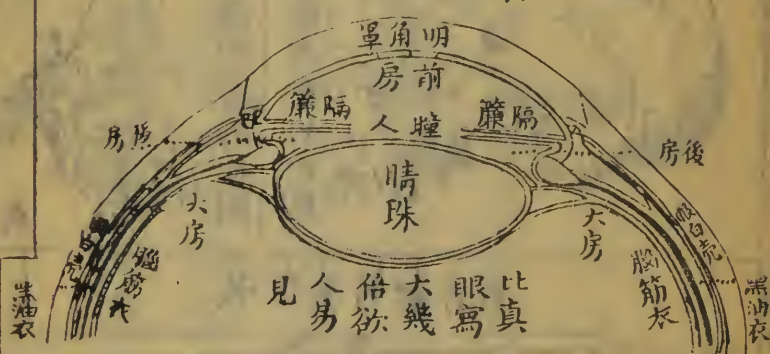 明角罩
前房
隔簾
瞳人
隔簾
後房
睛珠
大房
大房
眼白壳
腦筋衣
腦筋衣
黑油衣
黑油衣
比真
眼寫
大幾
倍欲
人易
見